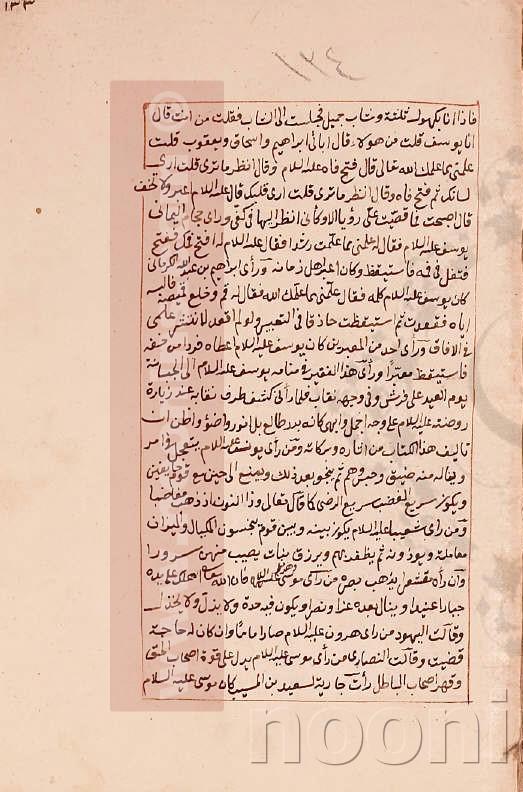 ١٣٣
١٣٤
فاذا انا بكهول ثلثة وشاب جميل فجلست الى الشاب فقلت من انت قال
انا يوسف قلت من هولاء قال ابائى ابراهيم واسحاق ويعقوب قلت
علمنى مما علمك الله تعالى قال فتح فاه عليه السلام وقال انظر ما ترى قلت ارى
لسانك ثم فتح فاه وقال انظر ما ترى قلت ارى قلبك قال عليه السلام عبر ولا تخف
قال اصبحت فما قصت على رؤيا الا وكانى انظر اليها فى كفى وراى اليمانى
يوسف عليه السلام فقال علمنى مما علمت رشدا فقال عليه السلام له افتح فمك ففتح
فتفل فى فيه فاستيقظ وكان اعبر اهل زمانه وراى ابراهيم بن عبد الله الكرمانى
كان يوسف عليه السلام كلمه فقال علمنى مما علمك الله فقال له قم وخلع قميصه فالبسه
اياه ثم استيقظت حاذقا فى التعبير ولو لم اقعد لانتشر علمى
فى الافاق وراى احد من المعبرين كان يوسف عليه السلام اعطاه
فاستيقظ معبرا وراى هذا الفقير فى منامه يوسف عليه السلام
يوم العيد على فرش وفى وجهه نقاب فلما راى كشف طرف نقابه عند زيارة
روضته عليه السلام على وجه اجمل وابهى كانه بدر طالع بل انور واضوأ واظن ان
تاليف هذا الكتاب من اثاره وبركاته ومن راى يوسف عليه السلام يتعجل فى امر
ويناله منه ضيق وحبس وهم ثم ينجو بعد ذلك ويمتع الى حين مع قوة يقين
ويكون سريع الغضب سريع الرضى كما قال تعالى وذا النون اذ ذهب مغاضبا
ومن راى شعيبا عليه السلام يكون بينه وبين قوم يبخسون المكيال والميزان
معاملة ويوذونه ثم يظفر بهم ويرزق بنات يصيب منهن سرورا
وان راه مقشعرا يذهب بصره من راى موسى عليه السلام فان الله اهلك على يده
جبارا عنيدا وينال بعده عزا ونصرا ويكون فيه حدة ولا يذل ولا يخذل
وقالت اليهود من راى هرون عليه السلام صار اماما وان كان له حاجة
قضيت وقالت النصارى من راى موسى عليه السلام يدل على قوة اصحاب الحق
وقهر اصحاب الباطل رات جارية لسعيد بن المسيب كان موسى عليه السلام
noon